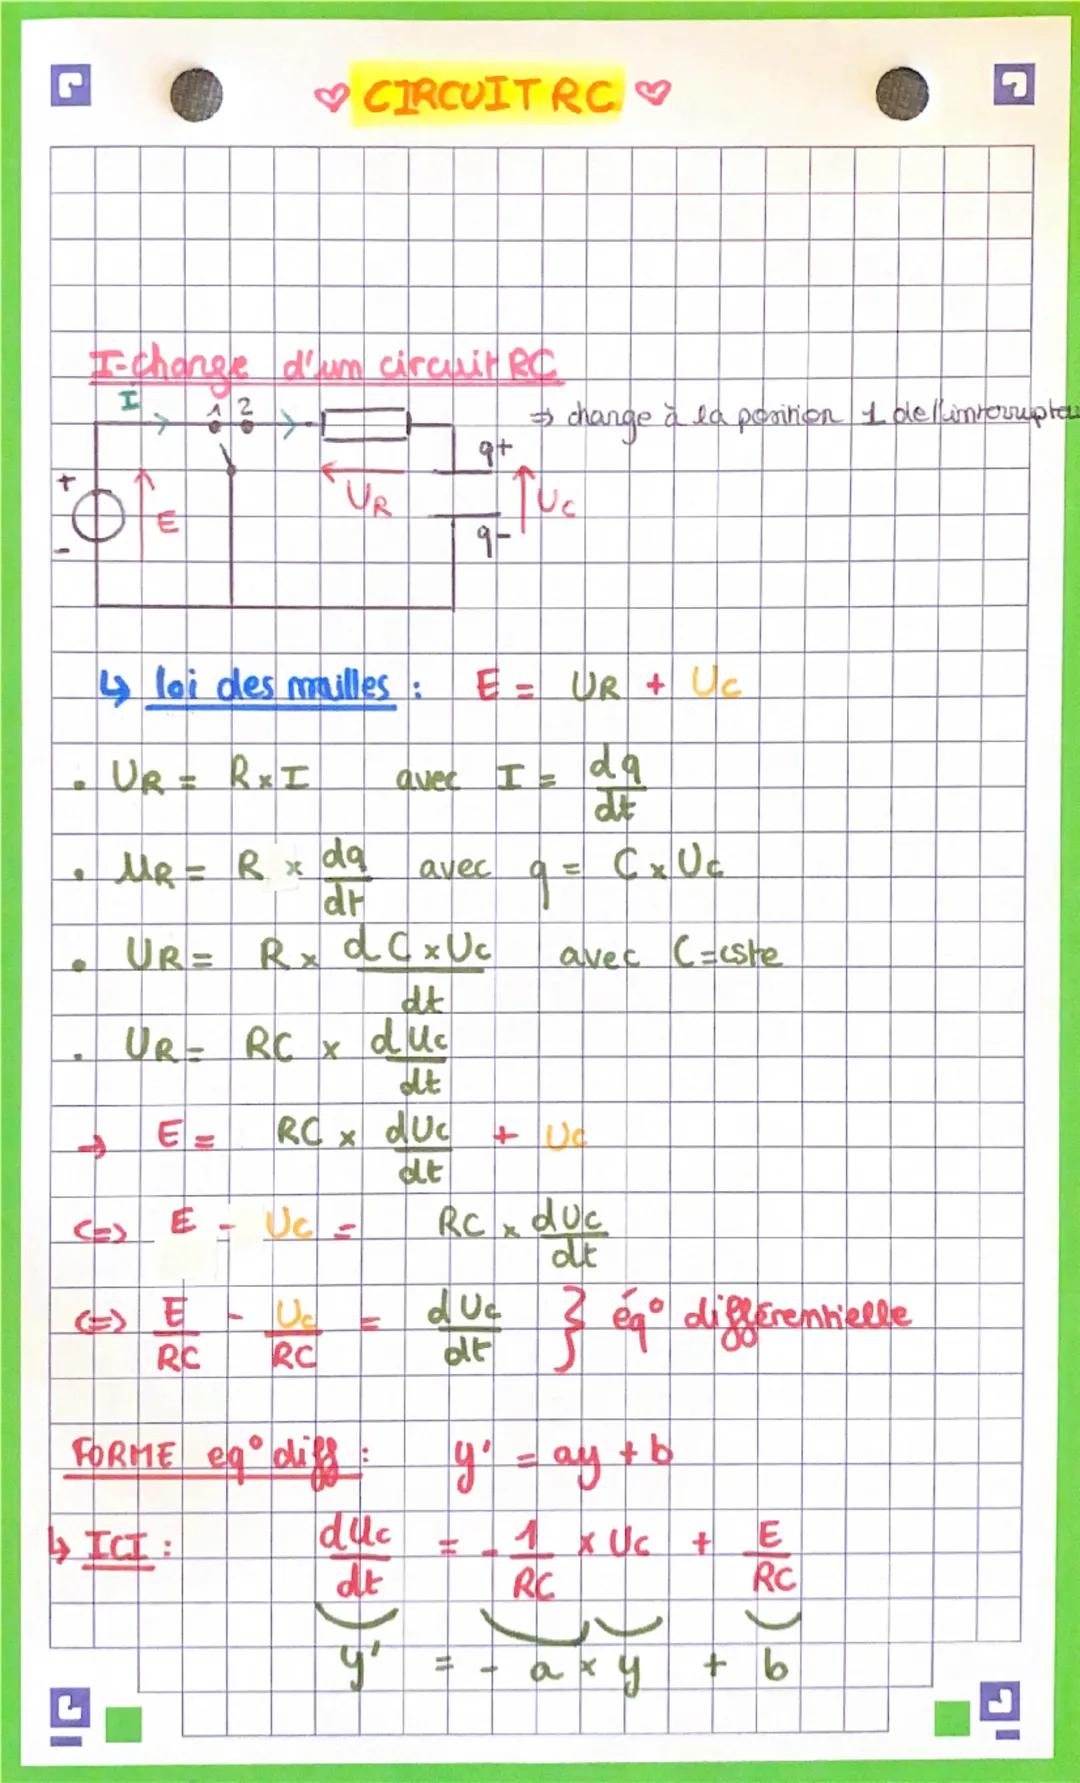 ♡ CIRCUIT RC ♡
I-charge d'um circuit RC
I 1 2
⇒ charge à la position 1 de l'interrupteu
+ E - UR q+ q- Uc
↳ loi des mailles : E = UR + Uc
• UR = R x I avec I = dq/dt
• UR = R x dq/dt avec q = C x Uc
• UR = R x dC x Uc/dt avec C = cste
• UR = RC x dUc/dt
→ E = RC x dUc/dt + Uc
<=> E - Uc = RC x dUc/dt
<=> E/RC - Uc/RC = dUc/dt } éq° différentielle
FORME eq° diff : y' = ay + b
↳ ICI : dUc/dt = - 1/RC x Uc + E/RC
y' = - a x y + b